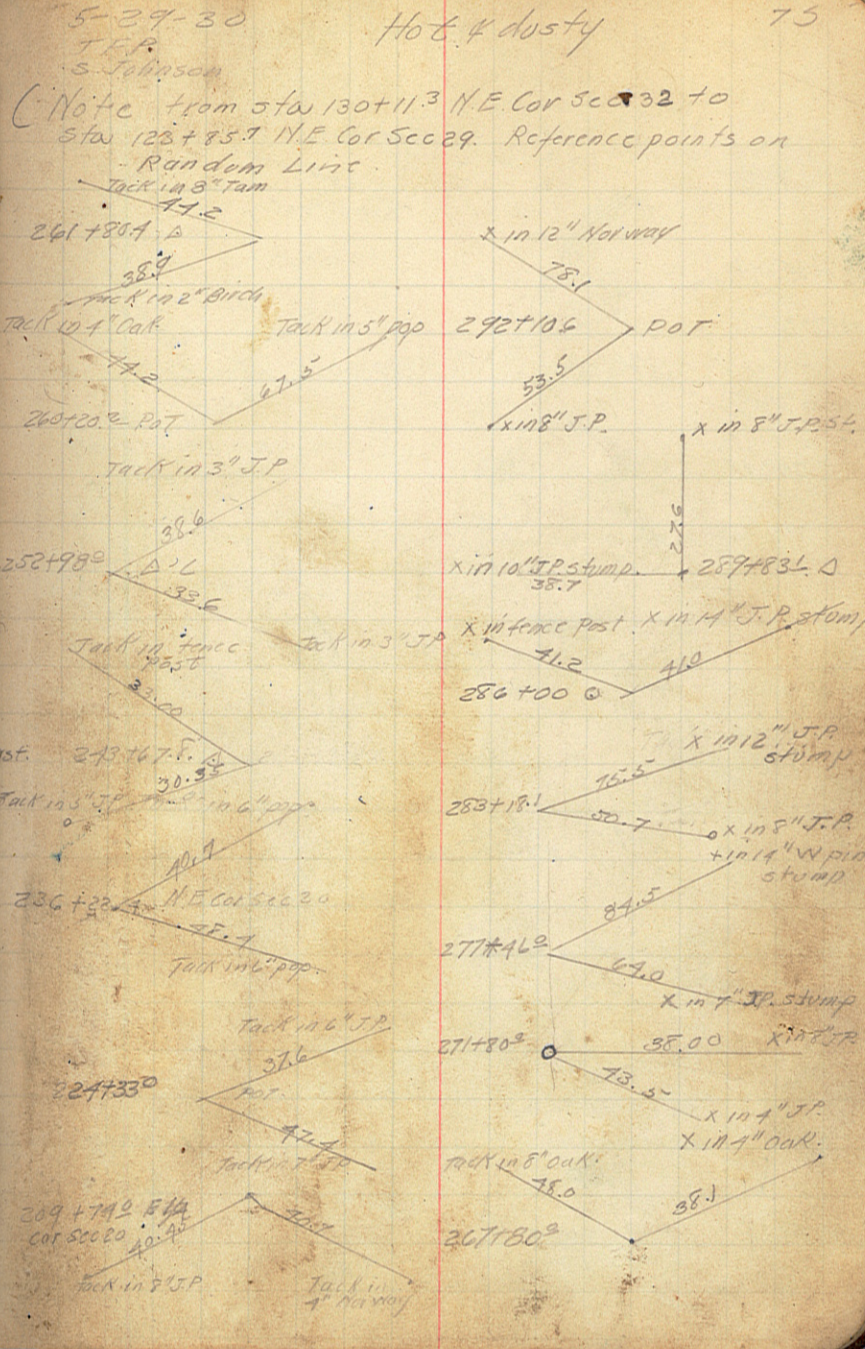 5-29-30
Hot & dusty
75
T.F.P.
S. Johnson
(Note from sta 130+11.3 N.E. Cor Sec 32 to
sta 123+85.7 N.E. Cor Sec 29. Reference points on
Random Line
Tack in 8" Tam
44.2
261+80.4 △
38.9
Tack in 2" Birch
Tack in 4" Oak
Tack in 5" pop
67.5
260+20.2 POT
Tack in 3" J.P.
38.6
252+98.0
33.6
Tack in 3" J.P.
Tack in fence
post
33.00
243+67.8 △
30.35
Tack in 5" J.P.
in 6" pop
40.7
236+22
N.E Cor Sec 20
48.7
Tack in 6" pop.
Tack in 6" J.P.
37.6
224+33.0
POT
47.4
Tack in 7" J.P.
209+74.0 E 1/4
cor sec 20
40.45
70.7
Tack in 8" J.P.
Tack in
4" Norway
x in 12" Norway
78.1
292+10.6
POT
53.5
x in 8" J.P.
x in 8" J.P. st.
x in 10" J.P. stump.
38.7
△
x in fence post
x in 14" J.P. stump
41.2
41.0
286+00
x in 12" J.P.
stump
75.5
283+18.1
50.7
x in 8" J.P.
+ in 14" W pin
stump
84.5
277+46.0
64.0
x in 7" J.P. stump
271+80
38.00
x in 8" J.P.
73.5
x in 4" J.P.
x in 4" Oak.
Tack in 8" Oak.
78.0
38.1
267+80